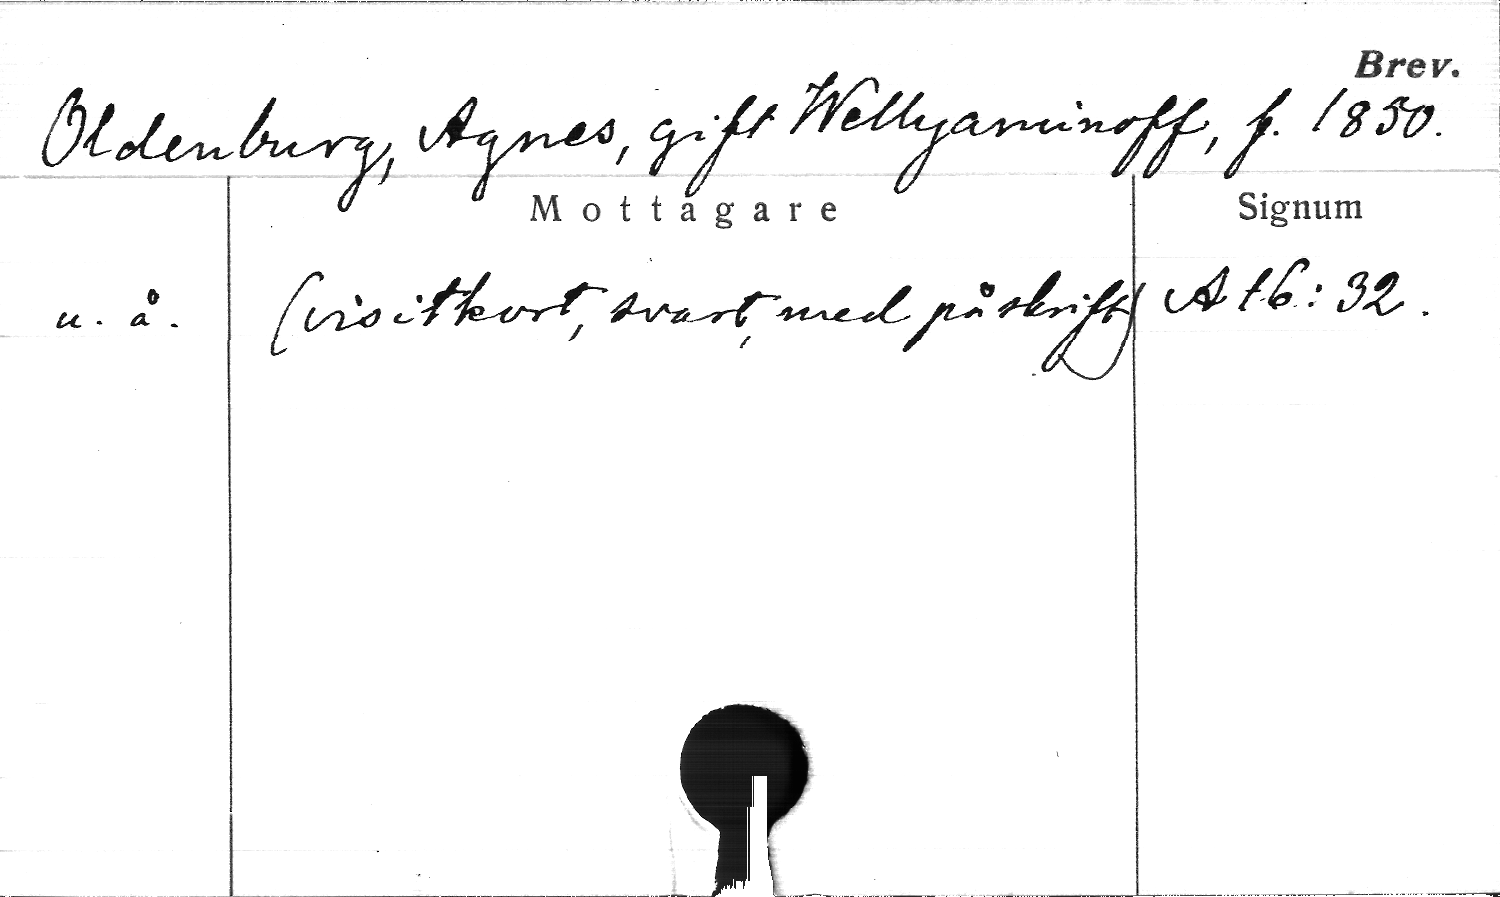 Brev.
Oldenburg, Agnes, gift Wellyaminoff, f. 1850.
Mottagare
Signum
u. å. (visitkort, svart, med påskrift) A t6:32.